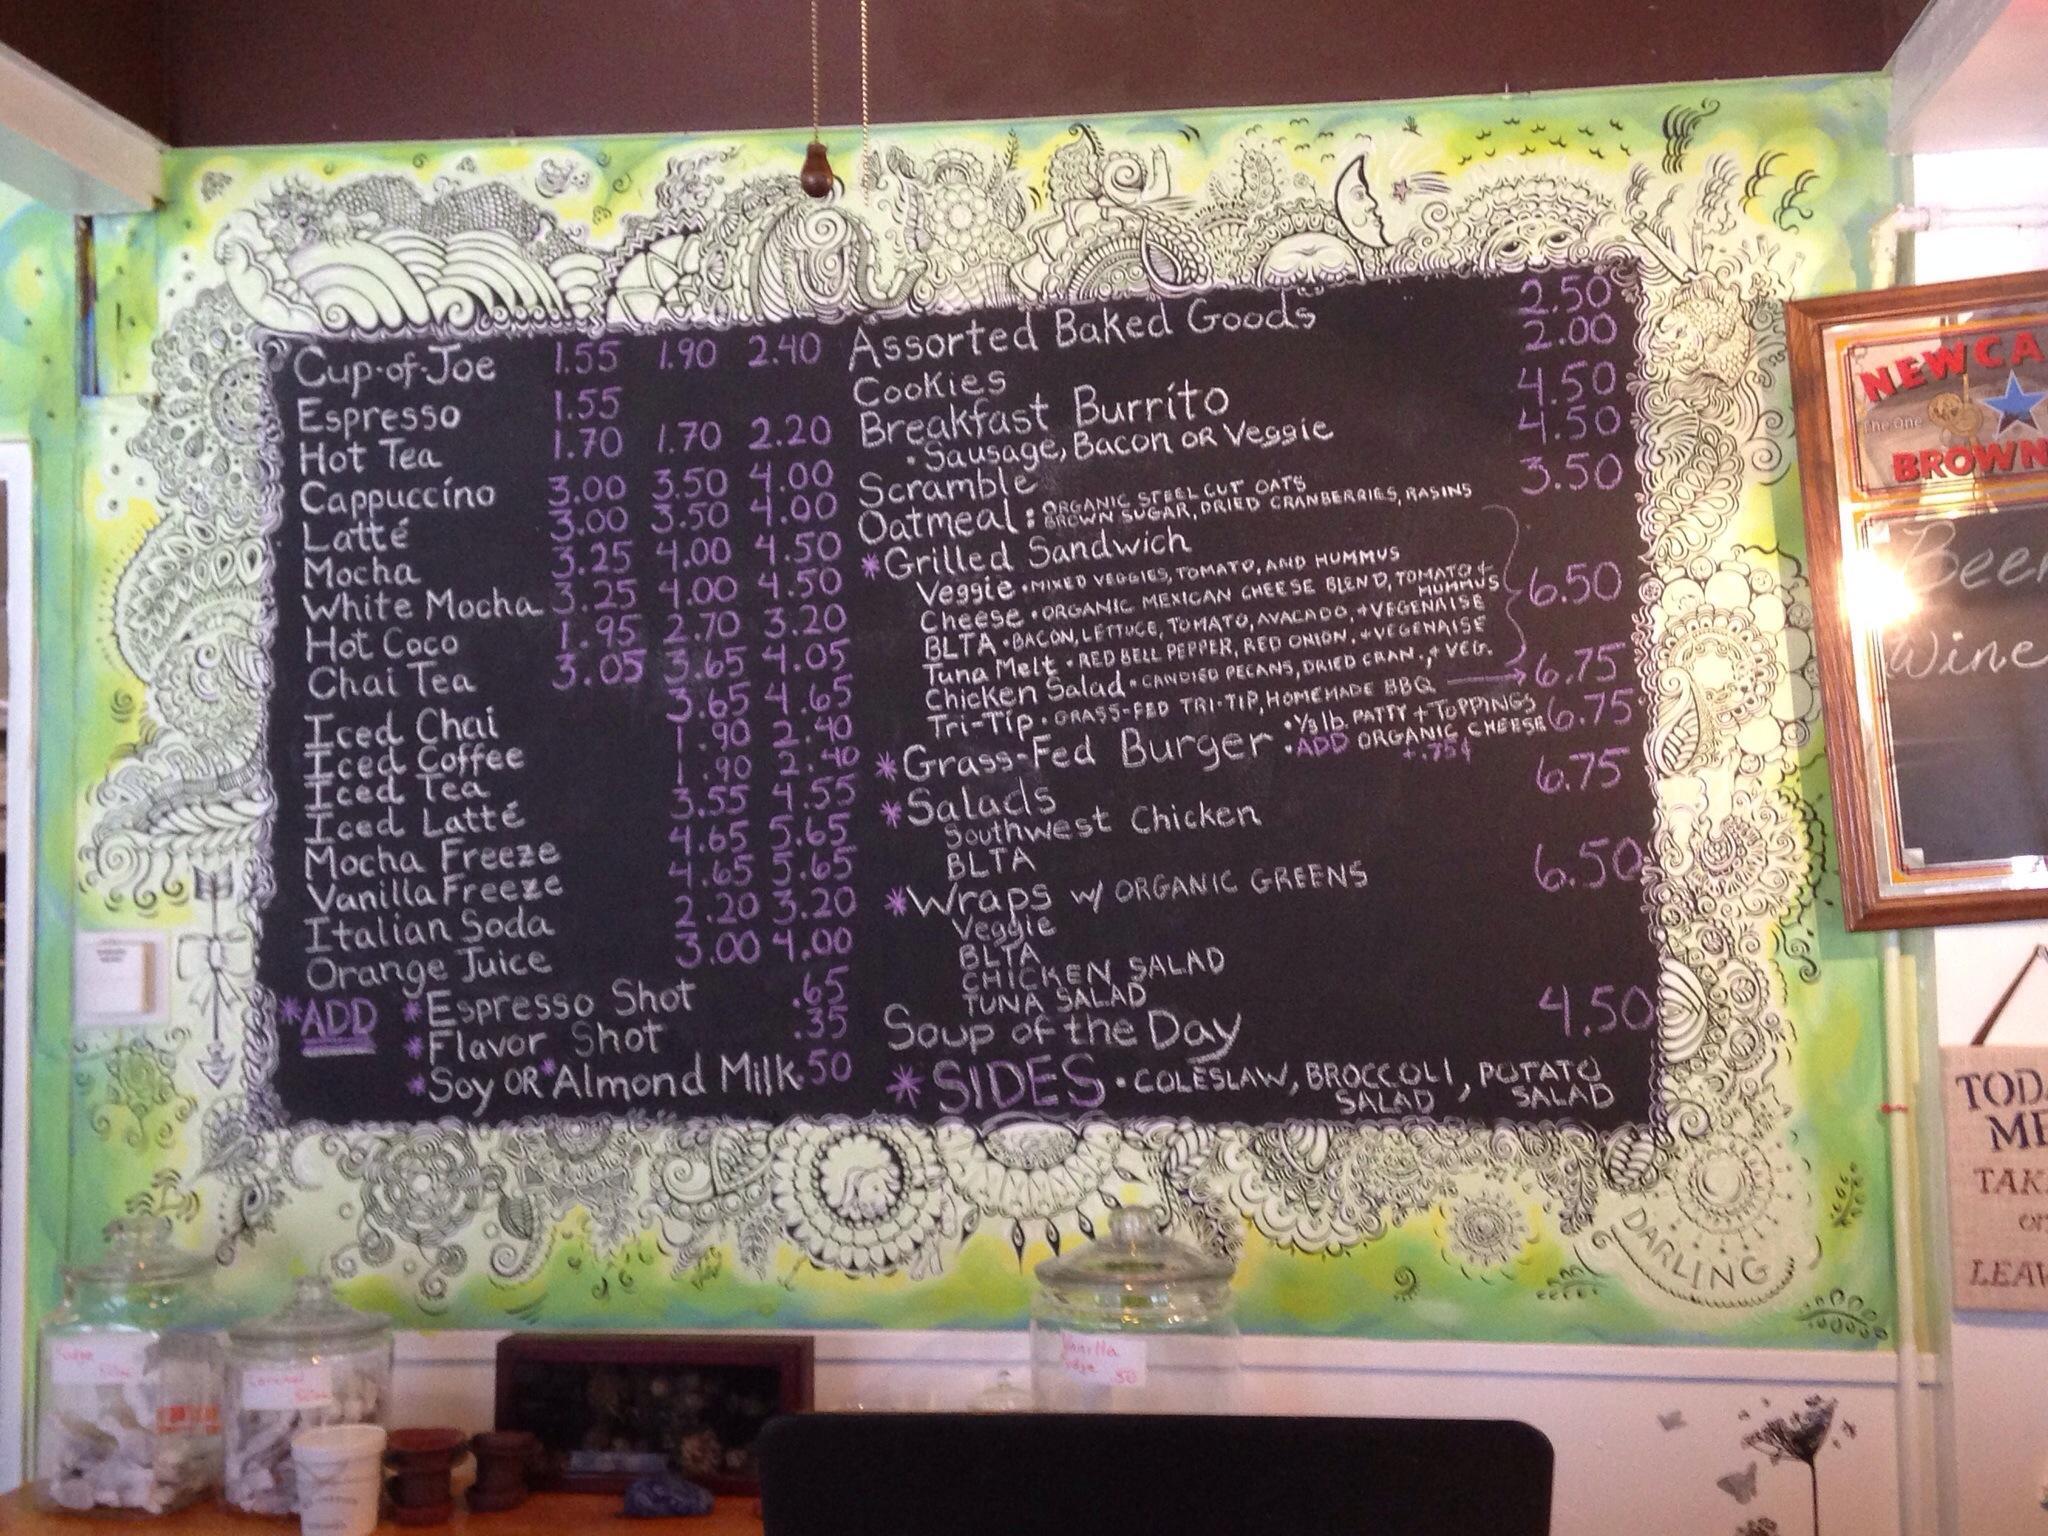 Cup-of-Joe 1.55 1.90 2.40
Espresso 1.55
Hot Tea 1.70 1.70 2.20
Cappuccino 3.00 3.50 4.00
Latté 3.00 3.50 4.00
Mocha 3.25 4.00 4.50
White Mocha 3.25 4.00 4.50
Hot Coco 1.95 2.70 3.20
Chai Tea 3.05 3.65 4.05
Iced Chai 3.65 4.65
Iced Coffee 1.90 2.40
Iced Tea 1.90 2.40
Iced Latté 3.55 4.55
Mocha Freeze 4.65 5.65
Vanilla Freeze 4.65 5.65
Italian Soda 2.20 3.20
Orange Juice 3.00 4.00
*ADD *Espresso Shot .65
*Flavor Shot .35
*Soy OR *Almond Milk .50
Assorted Baked Goods 2.50
Cookies 2.00
Breakfast Burrito 4.50
• Sausage, Bacon OR Veggie
Scramble 4.50
Oatmeal: ORGANIC STEEL CUT OATS 3.50
BROWN SUGAR, DRIED CRANBERRIES, RASINS
*Grilled Sandwich
Veggie • MIXED VEGGIES, TOMATO, AND HUMMUS
Cheese • ORGANIC MEXICAN CHEESE BLEND, TOMATO +
HUMMUS
6.50
BLTA • BACON, LETTUCE, TOMATO, AVACADO, + VEGENAISE
Tuna Melt • RED BELL PEPPER, RED ONION, + VEGENAISE
Chicken Salad • CANDIED PECANS, DRIED CRAN., + VEG.
Tri-Tip • GRASS-FED TRI-TIP, HOMEMADE BBQ → 6.75
*Grass-Fed Burger • 1/3 lb. PATTY + TOPPINGS 6.75
• ADD ORGANIC CHEESE
+.75¢
*Salads 6.75
Southwest Chicken
BLTA
*Wraps w/ ORGANIC GREENS 6.50
Veggie
BLTA
CHICKEN SALAD
TUNA SALAD
Soup of the Day 4.50
*SIDES • COLESLAW, BROCCOLI, POTATO
SALAD SALAD
DARLING
NEWCA
The One
BROWN
Beer
Wine
TODA
ME
TAK
or
LEAV
Vanilla
50